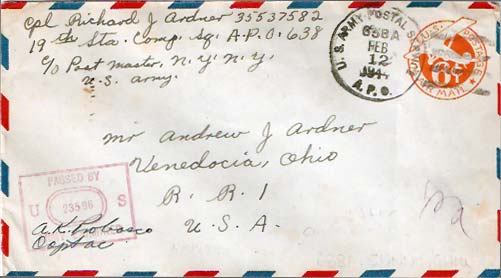 Cpl Richard J Ardner 35537582
19th Sta. Comp. Sq. A.P.O. 638
c/o Post master, n.y. n.y.
U.S. army.
U.S. ARMY POSTAL S
638A
FEB
12
1944
A.P.O.
POSTAGE
6¢
AIR MAIL
mr Andrew J Ardner
Venedocia, Ohio
R. R. 1
U. S. A.
PASSED BY
U S
23596
A.K. Probasco